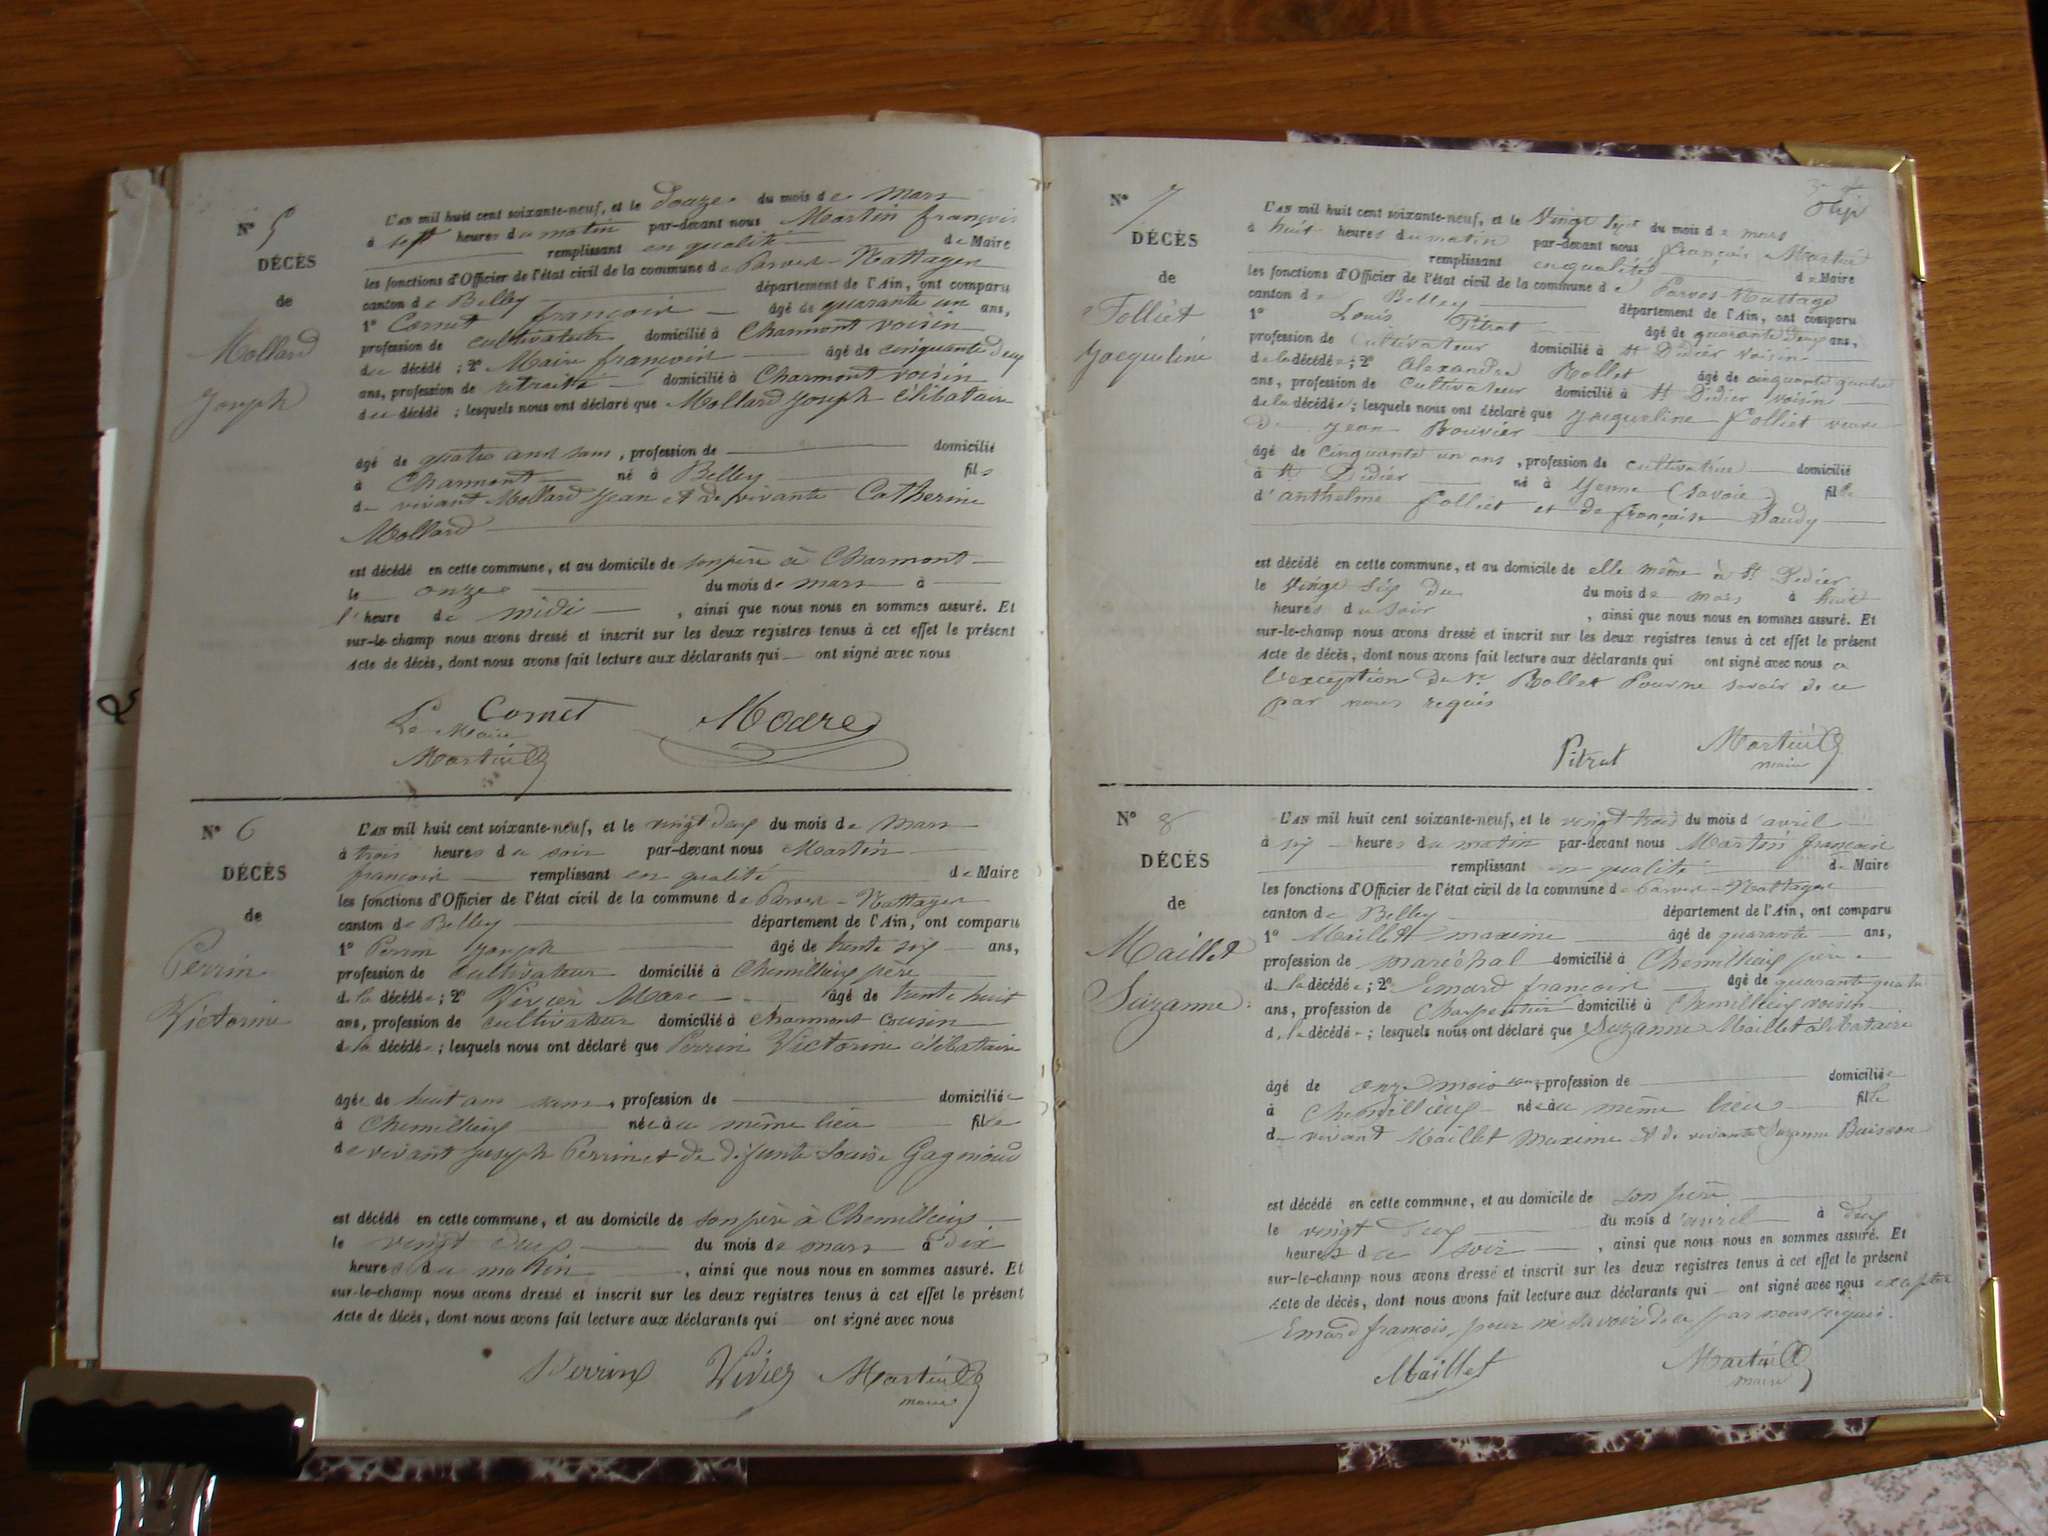 N° 5
DÉCÈS
de
Mollard
Joseph
L'AN mil huit cent soixante-neuf, et le douze du mois de mars
à sept heures du matin par-devant nous Martin françois
remplissant en qualité de Maire
les fonctions d'Officier de l'état civil de la commune de Parves-Nattages
canton de Belley département de l'Ain, ont comparu
1° Cornet françois âgé de quarante un ans,
profession de cultivateur domicilié à Charmont voisin
du décédé ; 2° Maire françois âgé de cinquante deux
ans, profession de retraité domicilié à Charmont voisin
du décédé ; lesquels nous ont déclaré que Mollard Joseph célibataire
âgé de quatre ans sans, profession de domicilié
à Charmont né à Belley fils
de vivant Mollard Jean et de vivante Catherine
Mollard
est décédé en cette commune, et au domicile de son père à Charmont
le onze du mois de mars à
l'heure de midi , ainsi que nous nous en sommes assuré. Et
sur-le-champ nous avons dressé et inscrit sur les deux registres tenus à cet effet le présent
Acte de décès, dont nous avons fait lecture aux déclarants qui ont signé avec nous
Cornet
Le Maire
Martin
N° 6
DÉCÈS
de
Perrin
Victorine
L'AN mil huit cent soixante-neuf, et le vingt deux du mois de mars
à trois heures du soir par-devant nous Martin
françois remplissant en qualité de Maire
les fonctions d'Officier de l'état civil de la commune de Parves-Nattages
canton de Belley département de l'Ain, ont comparu
1° Perrin Joseph âgé de trente six ans,
profession de cultivateur domicilié à Chemillieux père
de la décédée ; 2° Vivier Marc âgé de trente huit
ans, profession de cultivateur domicilié à Charmont cousin
de la décédée ; lesquels nous ont déclaré que Perrin Victorine célibataire
âgée de huit ans sans, profession de domiciliée
à Chemillieux née au même lieu fille
de vivant Joseph Perrin et de défunte Louise
est décédé en cette commune, et au domicile de son père à Chemillieux
le vingt deux du mois de mars à dix
heures du matin , ainsi que nous nous en sommes assuré. Et
sur-le-champ nous avons dressé et inscrit sur les deux registres tenus à cet effet le présent
Acte de décès, dont nous avons fait lecture aux déclarants qui ont signé avec nous
Perrin Vivier Martin
maire
N° 7
DÉCÈS
de
Folliet
Jacqueline
L'AN mil huit cent soixante-neuf, et le vingt sept du mois de mars
à huit heures du matin par-devant nous françois Martin
remplissant en qualité de Maire
les fonctions d'Officier de l'état civil de la commune de Parves-Nattage
canton de Belley département de l'Ain, ont comparu
1° Louis Pitrat âgé de quarante deux ans,
profession de Cultivateur domicilié à St Didier voisin
de la décédée ; 2° Alexandre Rollet âgé de cinquante quatre
ans, profession de Cultivateur domicilié à St Didier voisin
de la décédée ; lesquels nous ont déclaré que Jacqueline Folliet veuve
de Jean Bouvier
âgé de cinquante un ans, profession de cultivatrice domicilié
à St Didier né à Yenne (Savoie) fille
d'anthelme Folliet et de françoise
est décédé en cette commune, et au domicile de elle même à St Didier
le vingt six du du mois de mars à huit
heures du soir , ainsi que nous nous en sommes assuré. Et
sur-le-champ nous avons dressé et inscrit sur les deux registres tenus à cet effet le présent
Acte de décès, dont nous avons fait lecture aux déclarants qui ont signé avec nous a
l'exception du Sr Rollet Pour ne savoir de ce
par nous requis
Pitrat Martin
maire
N° 8
DÉCÈS
de
Maillet
Suzanne
L'AN mil huit cent soixante-neuf, et le vingt trois du mois d'avril
à six heures du matin par-devant nous Martin françois
remplissant en qualité de Maire
les fonctions d'Officier de l'état civil de la commune de Parves-Nattages
canton de Belley département de l'Ain, ont comparu
1° Maillet maxime âgé de quarante ans,
profession de maréchal domicilié à Chemillieux père
de la décédée ; 2° Emard françois âgé de quarante quatre
ans, profession de charpentier domicilié à Chemillieux voisin
de la décédée ; lesquels nous ont déclaré que Suzanne Maillet célibataire
âgé de onze mois sans, profession de domiciliée
à Chemillieux née au même lieu fille
de vivant Maillet maxime et de vivante Suzanne Buisson
est décédé en cette commune, et au domicile de son père
le vingt deux du mois d'avril à dix
heures du soir , ainsi que nous nous en sommes assuré. Et
sur-le-champ nous avons dressé et inscrit sur les deux registres tenus à cet effet le présent
Acte de décès, dont nous avons fait lecture aux déclarants qui ont signé avec nous excepter
Emard françois, pour ne savoir de ce par nous requis.
Maillet Martin
maire